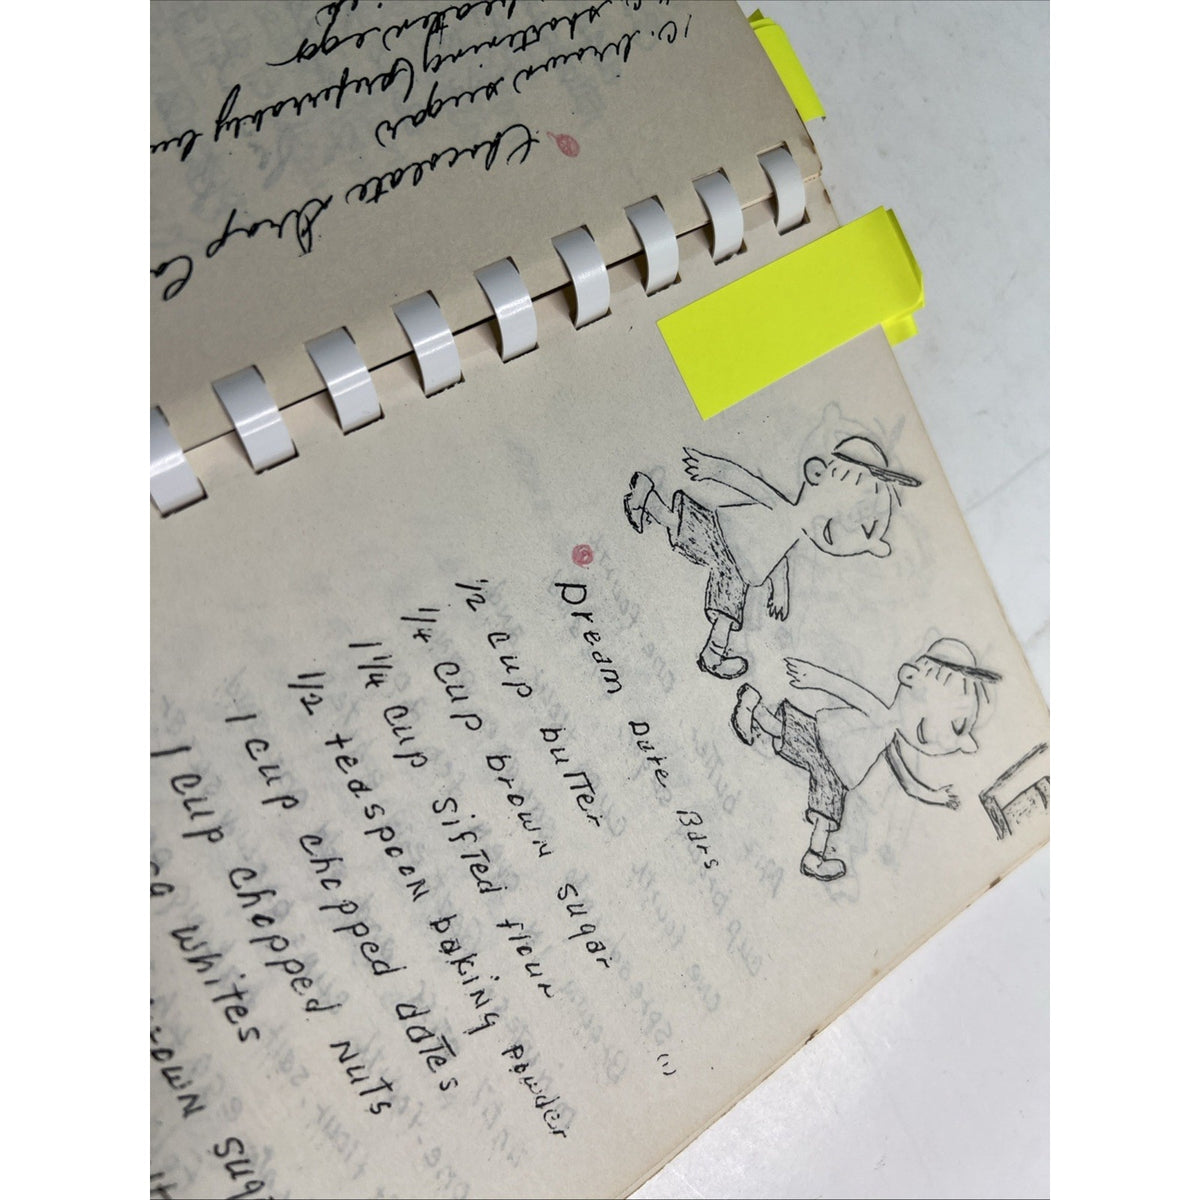 Chocolate Drop
1 C. brown sugar
shortening (preferably
beaten egg
Dream Date Bars
(1)
1/2 cup butter
1/4 cup brown sugar
1 1/4 cup sifted flour
1/2 teaspoon baking powder
1 cup chopped dates
1 cup chopped nuts
whites
sug